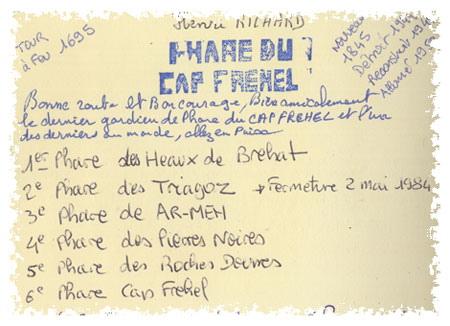 TOUR
à Feu 1695
RICHARD
PHARE DU
CAP FREHEL
Nouveau
1845
Détruit 1944
Reconstruit
Allumé
Bonne route et Bon courage, Bien amicalement
le dernier gardien de Phare du CAP FREHEL et l'un
des derniers du monde, allez en Paix
1er Phare des Heaux de Brehat
2e Phare des Triagoz → Fermeture 2 mai 1984
3e Phare de AR-MEN
4e Phare des Pierres Noires
5e Phare des Roches Douvres
6e Phare Cap Frehel